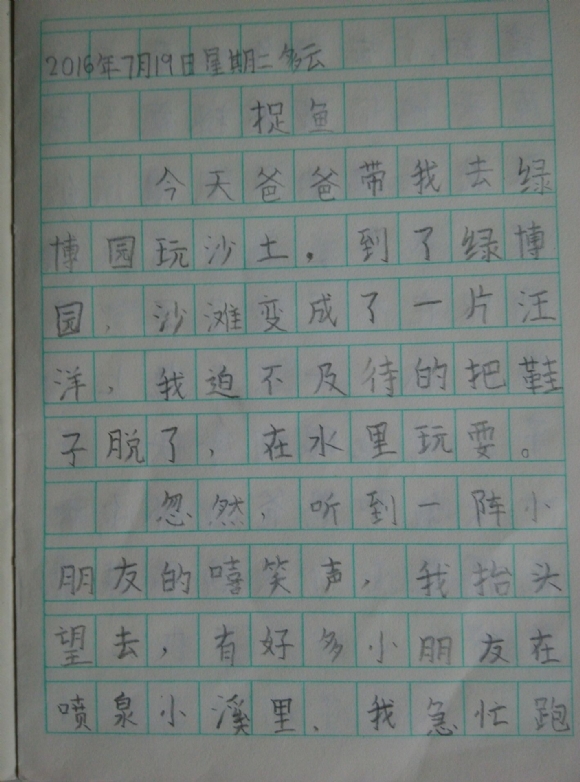 2016年7月19日星期二多云
捉鱼
今天爸爸带我去绿
博园玩沙土。到了绿博
园，沙滩变成了一片汪
洋，我迫不及待的把鞋
子脱了，在水里玩耍。
忽然，听到一阵小
朋友的嘻笑声，我抬头
望去，有好多小朋友在
喷泉小溪里，我急忙跑